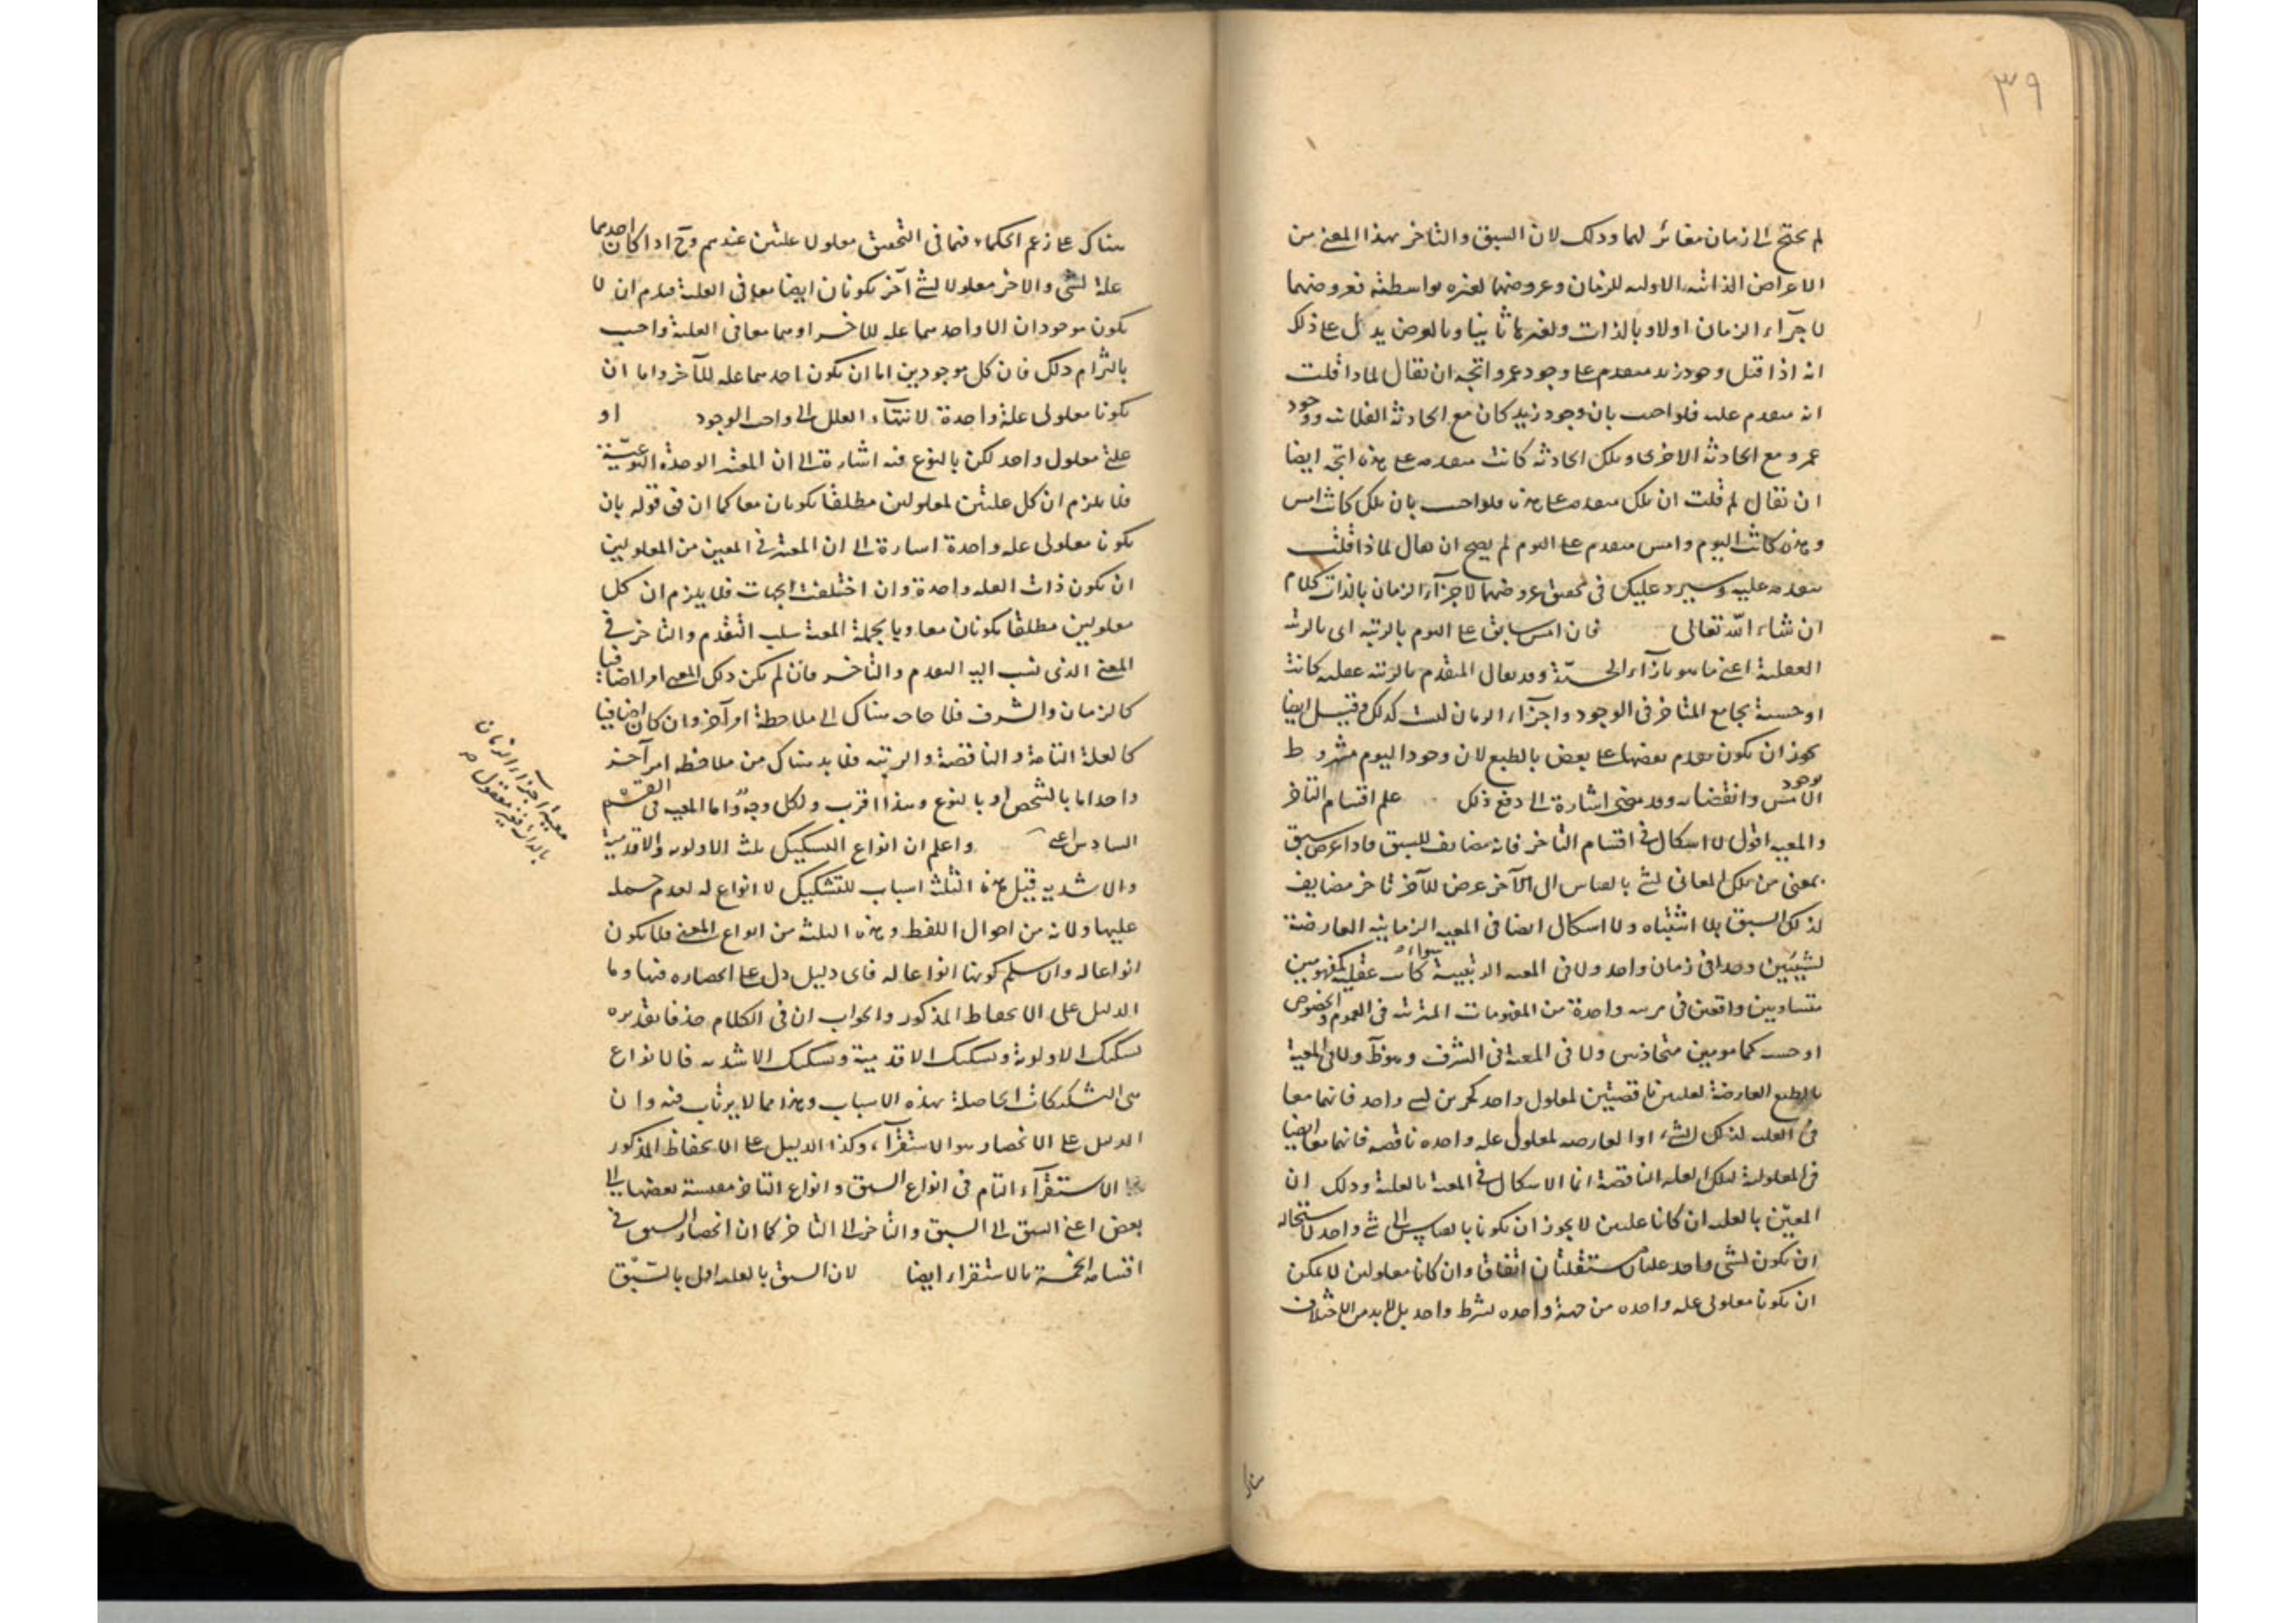 ٣٩
لم يحتج الى زمان مغائر لهما وذلك لان السبق والتاخر بهذا المعنى من
الاعراض الذاتية الاولية للزمان وعروضهما لغيره بواسطته فعروضهما
لاجزاء الزمان اولا وبالذات ولغيرها ثانيا وبالعرض يدل على ذلك
انه اذا قيل وجود زيد متقدم على وجود عمرو اتجه ان يقال لماذا قلت
انه متقدم عليه فلو اجيب بان وجود زيد كان مع الحادثة الفلانية ووجود
عمرو مع الحادثة الاخرى وتلك الحادثة كانت متقدمة على هذه اتجه ايضا
ان يقال لم قلت ان تلك متقدمة على هذه فلو اجيب بان تلك كانت امس
وهذه كانت اليوم وامس متقدم على اليوم لم يصح ان يقال لماذا قلت
متقدمة عليه وسيرد عليك فى تحقيق عروضهما لاجزاء الزمان بالذات كلام
ان شاء الله تعالى فان امس سابق على اليوم بالرتبة اى بالرتبة
العقلية اعنى ما هو بازاء الحسية وقد يقال المتقدم بالرتبة عقلية كانت
او حسية يجامع المتاخر فى الوجود واجزاء الزمان ليست كذلك وقيل ايضا
يجوز ان يكون تقدم بعضها على بعض بالطبع لان وجود اليوم مشروط
بوجود الامس وانقضائه وقد مضى اشارة الى دفع ذلك علم اقسام التاخر
والمعية اقول لا اشكال فى اقسام التاخر فانه مضايف للسبق فاذا عرض سبق
بمعنى من تلك المعانى لشئ بالقياس الى الآخر عرض للآخر تاخر مضايف
لذلك السبق بلا اشتباه ولا اشكال ايضا فى المعية الزمانية العارضة
لشيئين وجدا فى زمان واحد ولا فى المعية الرتبية سواء كانت عقلية كمفهومين
متساويين واقعين فى مرتبة واحدة من المفهومات المترتبة فى العموم والخصوص
او حسية كمامومين متحاذيين ولا فى المعية فى الشرف وهو ظ ولا فى المعية
بالطبع العارضة لعلتين ناقصتين لمعلول واحد كجزئين لشئ واحد فانهما معا
فى العلية لذلك الشئ او العارضة لمعلولى علة واحدة ناقصة فانهما معا ايضا
فى المعلولية لتلك العلة الناقصة انما الاشكال فى المعية بالعلية وذلك ان
المعين بالعلية ان كانا علتين لا يجوز ان يكونا بالقياس الى شئ واحد لاستحالة
ان يكون لشئ واحد علتان مستقلتان اتفاقا وان كانا معلولين لا يمكن
ان يكونا معلولى علة واحدة من جهة واحدة بشرط واحد بل لا بد من الاختلاف
هناك
هناك على زعم الحكماء فهما فى التحقيق معلولا علتين عندهم وح اذا كان احدهما
علة لشئ والاخر معلولا لشئ آخر يكونان ايضا معا فى العلية فيلزم ان لا
يكون موجودان الا واحدهما علة للاخر او هما معا فى العلية واجيب
بالتزام ذلك فان كل موجودين اما ان يكون احدهما علة للآخر واما ان
يكونا معلولى علة واحدة لانتهاء العلل الى واجب الوجود او
علتى معلول واحد لكن بالنوع فيه اشارة الى ان المعتبر الوحدة النوعية
فلا يلزم ان كل علتين لمعلولين مطلقا يكونان معا كما ان فى قوله بان
يكونا معلولى علة واحدة اشارة الى ان المعتبر فى المعين من المعلولين
ان يكون ذات العلة واحدة وان اختلفت الجهات فلا يلزم ان كل
معلولين مطلقا يكونان معا وبالجملة المعية سلب التقدم والتاخر فى
المعنى الذى نسب اليه التقدم والتاخر فان لم يكن ذلك المعنى امرا اضافيا
كالزمان والشرف فلا حاجة هناك الى ملاحظة امر آخر وان كان اضافيا
كالعلة التامة والناقصة والرتبة فلا بد هناك من ملاحظة امر آخر
واحد اما بالشخص او بالنوع وهذا اقرب ولكل وجه واما المعية فى القسم
السادس اعنى واعلم ان انواع التشكيك ثلث الاولوية والاقدمية
والاشدية قيل هذه الثلث اسباب للتشكيك لا انواع له لعدم حمله
عليها ولانه من احوال اللفظ وهذه الثلثة من انواع المعنى فلا يكون
انواعا له والا سلم كونها انواعا له فاى دليل دل على انحصاره فيها وما
الدليل على الانحفاظ المذكور والجواب ان فى الكلام حذفا تقديره
تشكيك الاولوية وتشكيك الاقدمية وتشكيك الاشدية فالانواع
هى التشكيكات الحاصلة بهذه الاسباب وهذا مما لا يرتاب فيه وان
الدليل على الانحصار هو الاستقراء وكذا الدليل على الانحفاظ المذكور
الاستقراء التام فى انواع السبق وانواع التاخر مقيسة بعضها الى
بعض اعنى السبق الى السبق والتاخر الى التاخر كما ان انحصار السبق فى
اقسامه الخمسة بالاستقراء ايضا لان السبق بالعلية اول بالسبق
معية اجزاء الزمان
بالذات فغير معقول صح